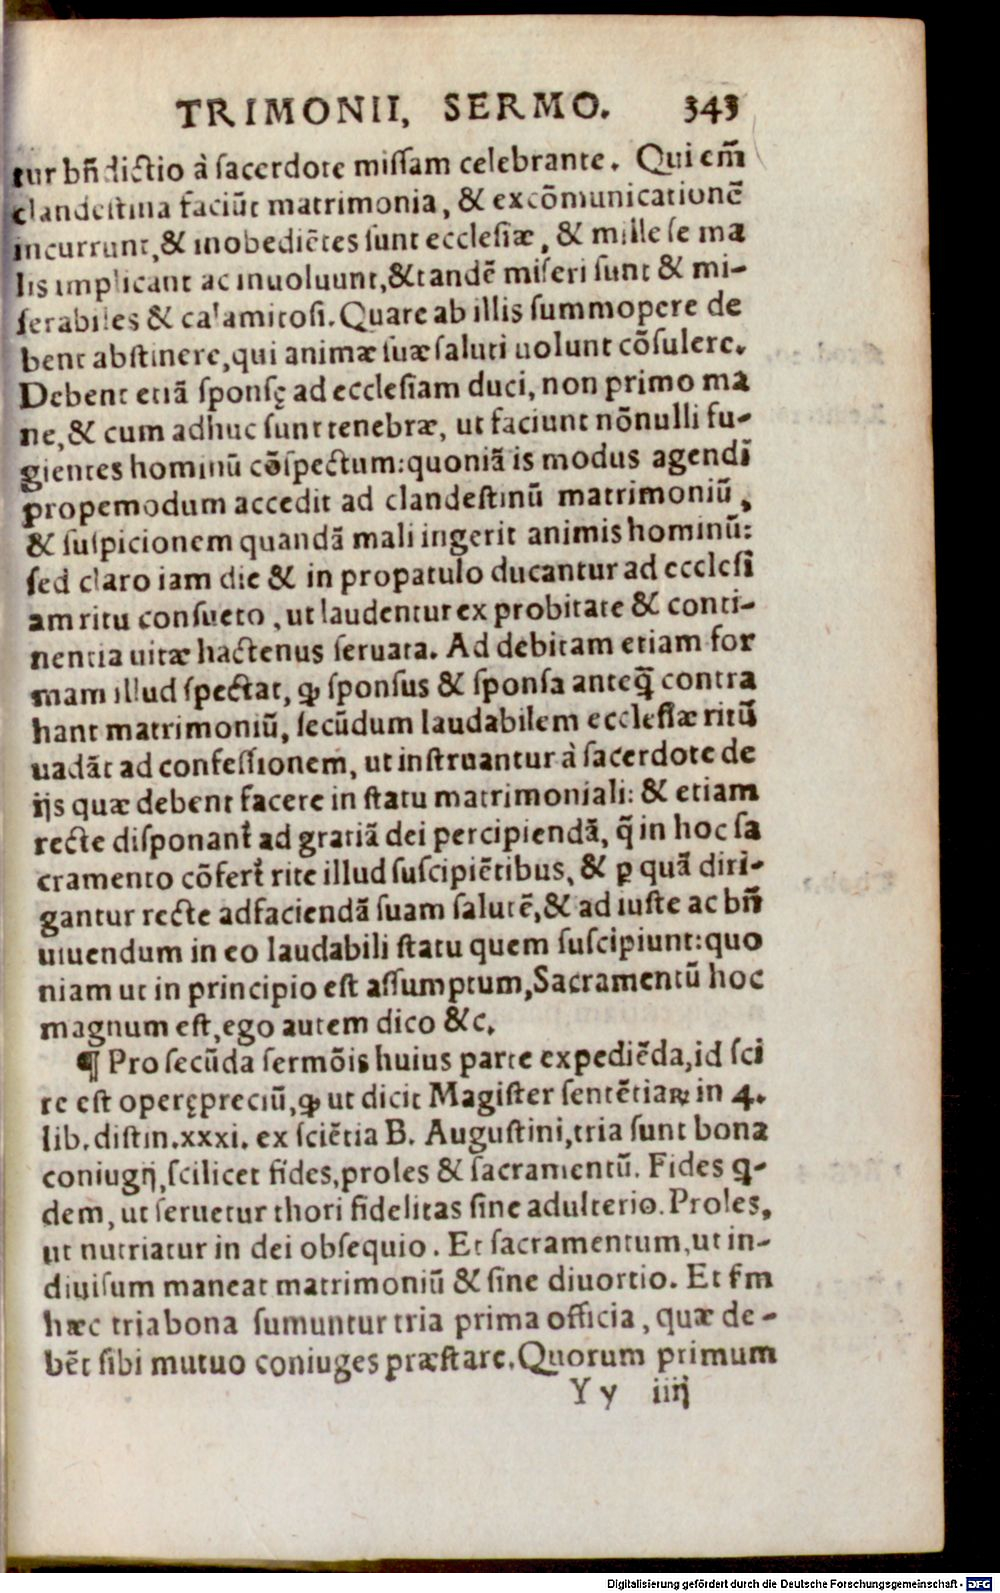 TRIMONII, SERMO. 343
tur bñdictio à sacerdote missam celebrante. Qui em̃
clandestina faciũt matrimonia, & excõmunicationẽ
incurrunt, & inobediẽtes sunt ecclesiæ, & mille se ma
lis implicant ac inuoluunt, & tandẽ miseri sunt & mi-
serabiles & calamitosi. Quare ab illis summopere de
bent abstinere, qui animæ suæ saluti uolunt cõsulere.
Debent etiã sponsę ad ecclesiam duci, non primo ma
ne, & cum adhuc sunt tenebræ, ut faciunt nõnulli fu-
gientes hominũ cõspectum: quoniã is modus agendi
propemodum accedit ad clandestinũ matrimoniũ,
& suspicionem quandã mali ingerit animis hominũ:
sed claro iam die & in propatulo ducantur ad ecclesi
am ritu consueto, ut laudentur ex probitate & conti-
nentia uitæ hactenus seruata. Ad debitam etiam for
mam illud spectat, ꝙ sponsus & sponsa anteq̃ contra
hant matrimoniũ, secũdum laudabilem ecclesiæ ritũ
uadãt ad confessionem, ut instruantur à sacerdote de
ijs quæ debent facere in statu matrimoniali: & etiam
recte disponant᷑ ad gratiã dei percipiendã, q̃ in hoc sa
cramento cõfert᷑ rite illud suscipiẽtibus, & ꝑ quã diri-
gantur recte ad faciendã suam salutẽ, & ad iuste ac bñ
uiuendum in eo laudabili statu quem suscipiunt: quo
niam ut in principio est assumptum, Sacramentũ hoc
magnum est, ego autem dico &c.
¶ Pro secũda sermõis huius parte expediẽda, id sci
re est operępreciũ, ꝙ ut dicit Magister sentẽtiaꝝ in 4.
lib. distin. xxxi. ex sciẽtia B. Augustini, tria sunt bona
coniugij, scilicet fides, proles & sacramentũ. Fides q-
dem, ut seruetur thori fidelitas sine adulterio. Proles,
ut nutriatur in dei obsequio. Et sacramentum, ut in-
diuisum maneat matrimoniũ & sine diuortio. Et fm
hæc tria bona sumuntur tria prima officia, quæ de-
bẽt sibi mutuo coniuges præstare. Quorum primum
Y y iiij
Digitalisierung gefördert durch die Deutsche Forschungsgemeinschaft - DFG